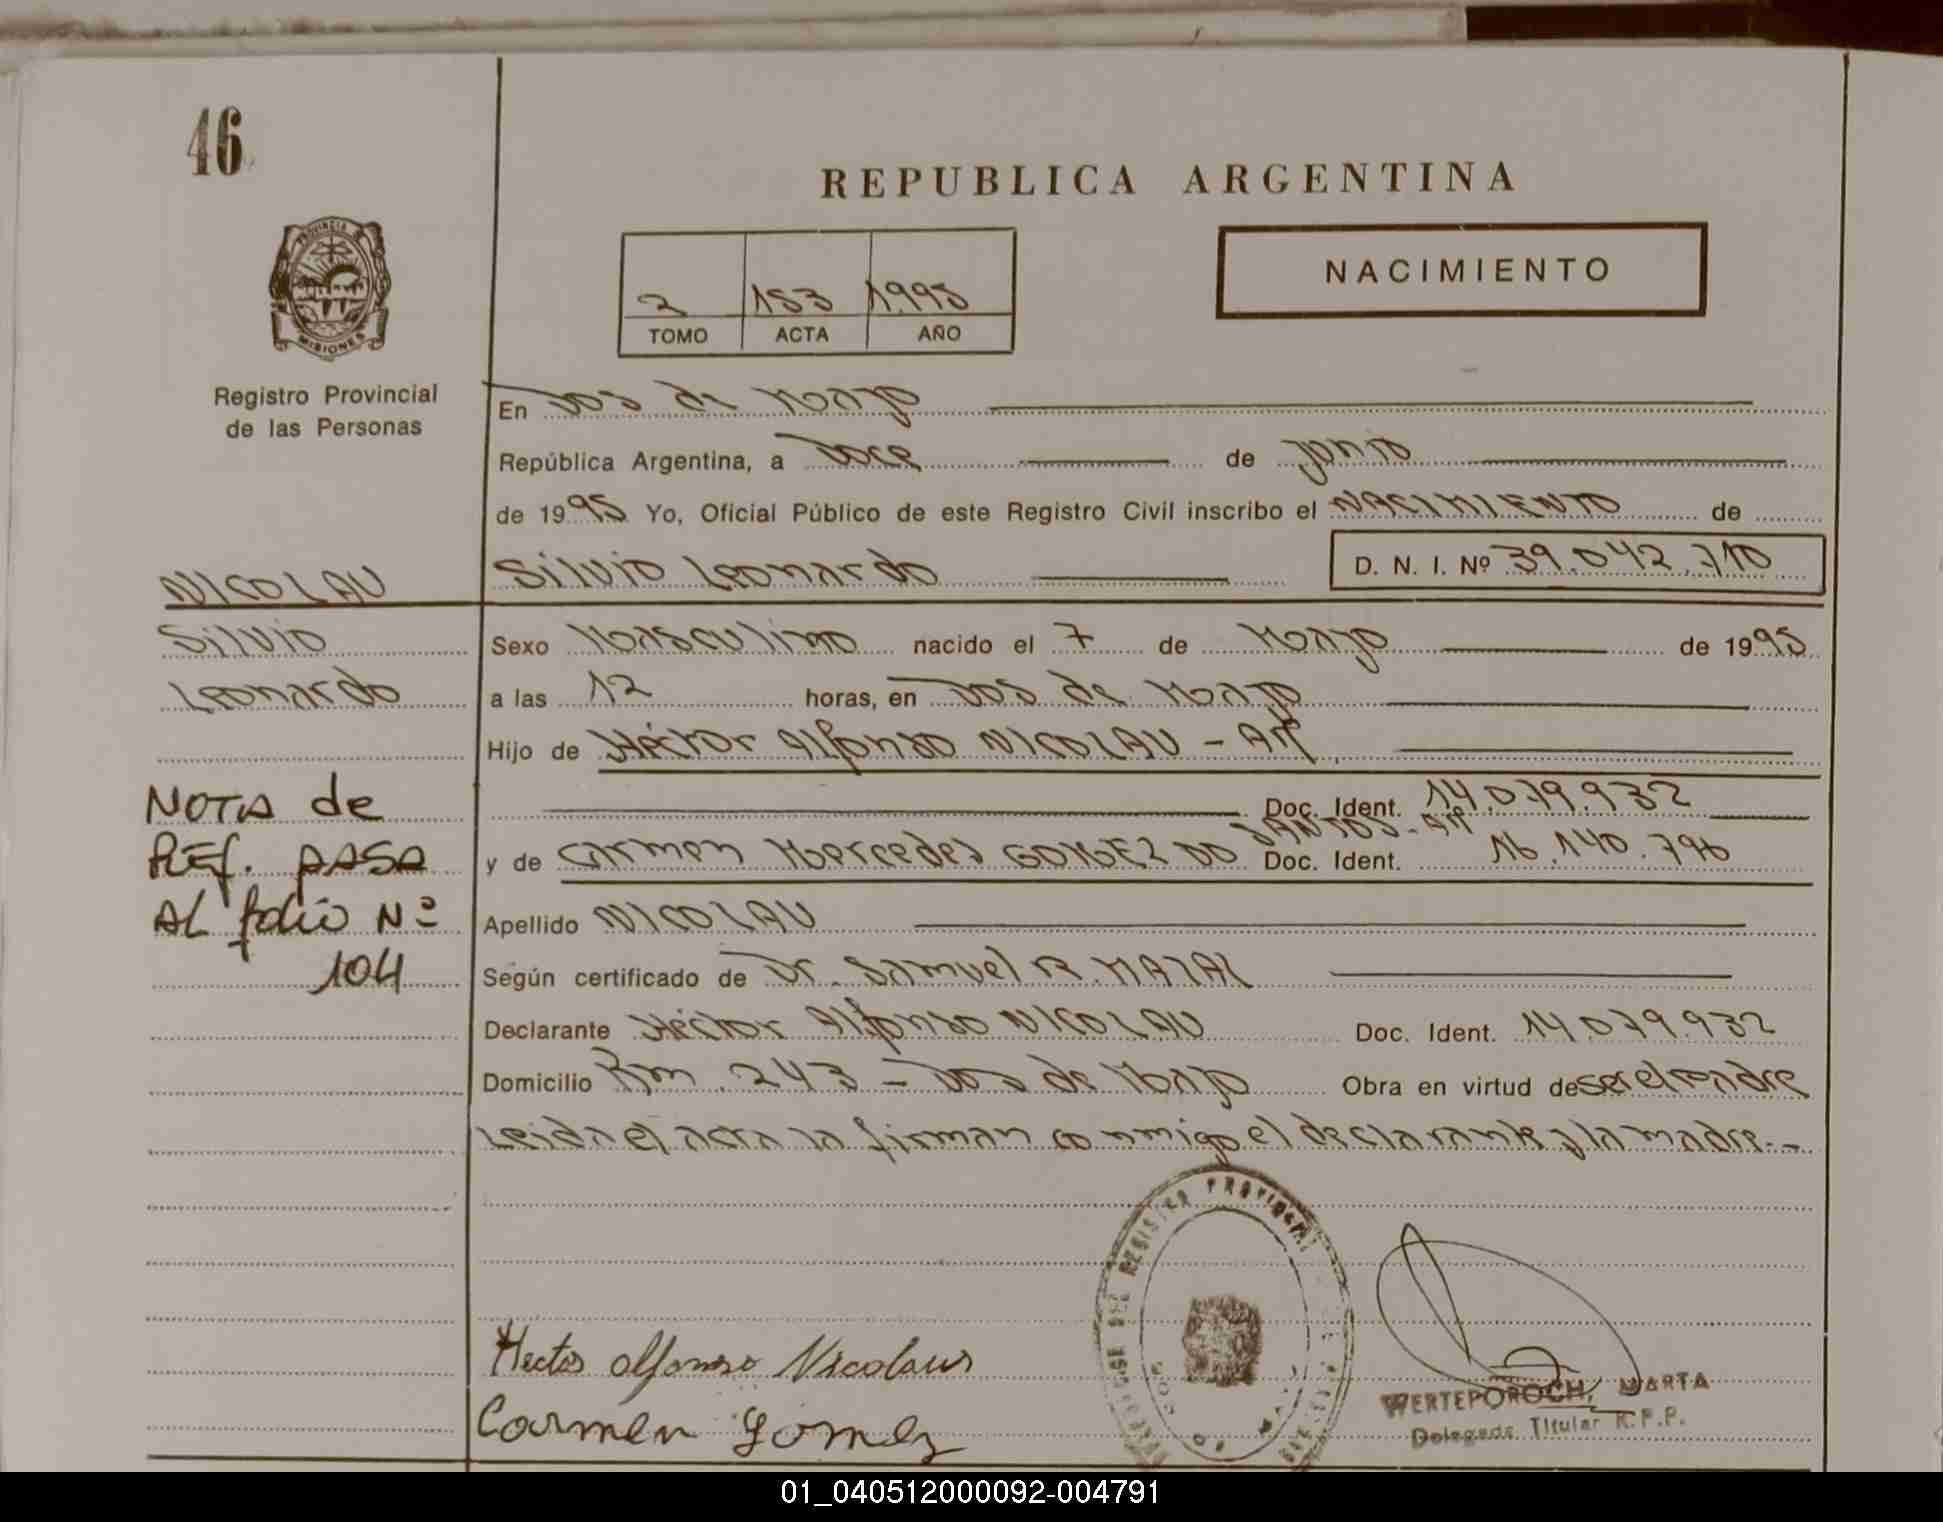 46
REPUBLICA ARGENTINA
PROVINCIA DE
MISIONES
Registro Provincial
de las Personas
2 153 1.995
TOMO ACTA AÑO
NACIMIENTO
En Dos de Mayo
República Argentina, a Doce de junio
de 1995 Yo, Oficial Público de este Registro Civil inscribo el NACIMIENTO de
NICOLAU
Silvio Leonardo D. N. I. Nº 39.042.710
Silvio
Leonardo
Sexo Masculino nacido el 7 de Mayo de 1995
a las 12 horas, en Dos de Mayo
Hijo de Héctor Alfonso NICOLAU - Arg
Doc. Ident. 14.079.932
NOTA de
REF. PASA
AL folio Nº
104
y de Carmen Mercedes GOMEZ DO SANTOS - Arg Doc. Ident. 16.140.796
Apellido NICOLAU
Según certificado de Dr. Samuel R. MAZAL
Declarante Héctor Alfonso NICOLAU Doc. Ident. 14.079.932
Domicilio Km. 243 - Dos de Mayo Obra en virtud de ser el padre
Leida el acta la firman conmigo el declarante y la madre.--
REGISTRO PROVINCIAL
Hector Alfonso Nicolau
Carmen Gomez
WERTEPOROCH, MARTA
Delegada Titular R.P.P.
01_040512000092-004791